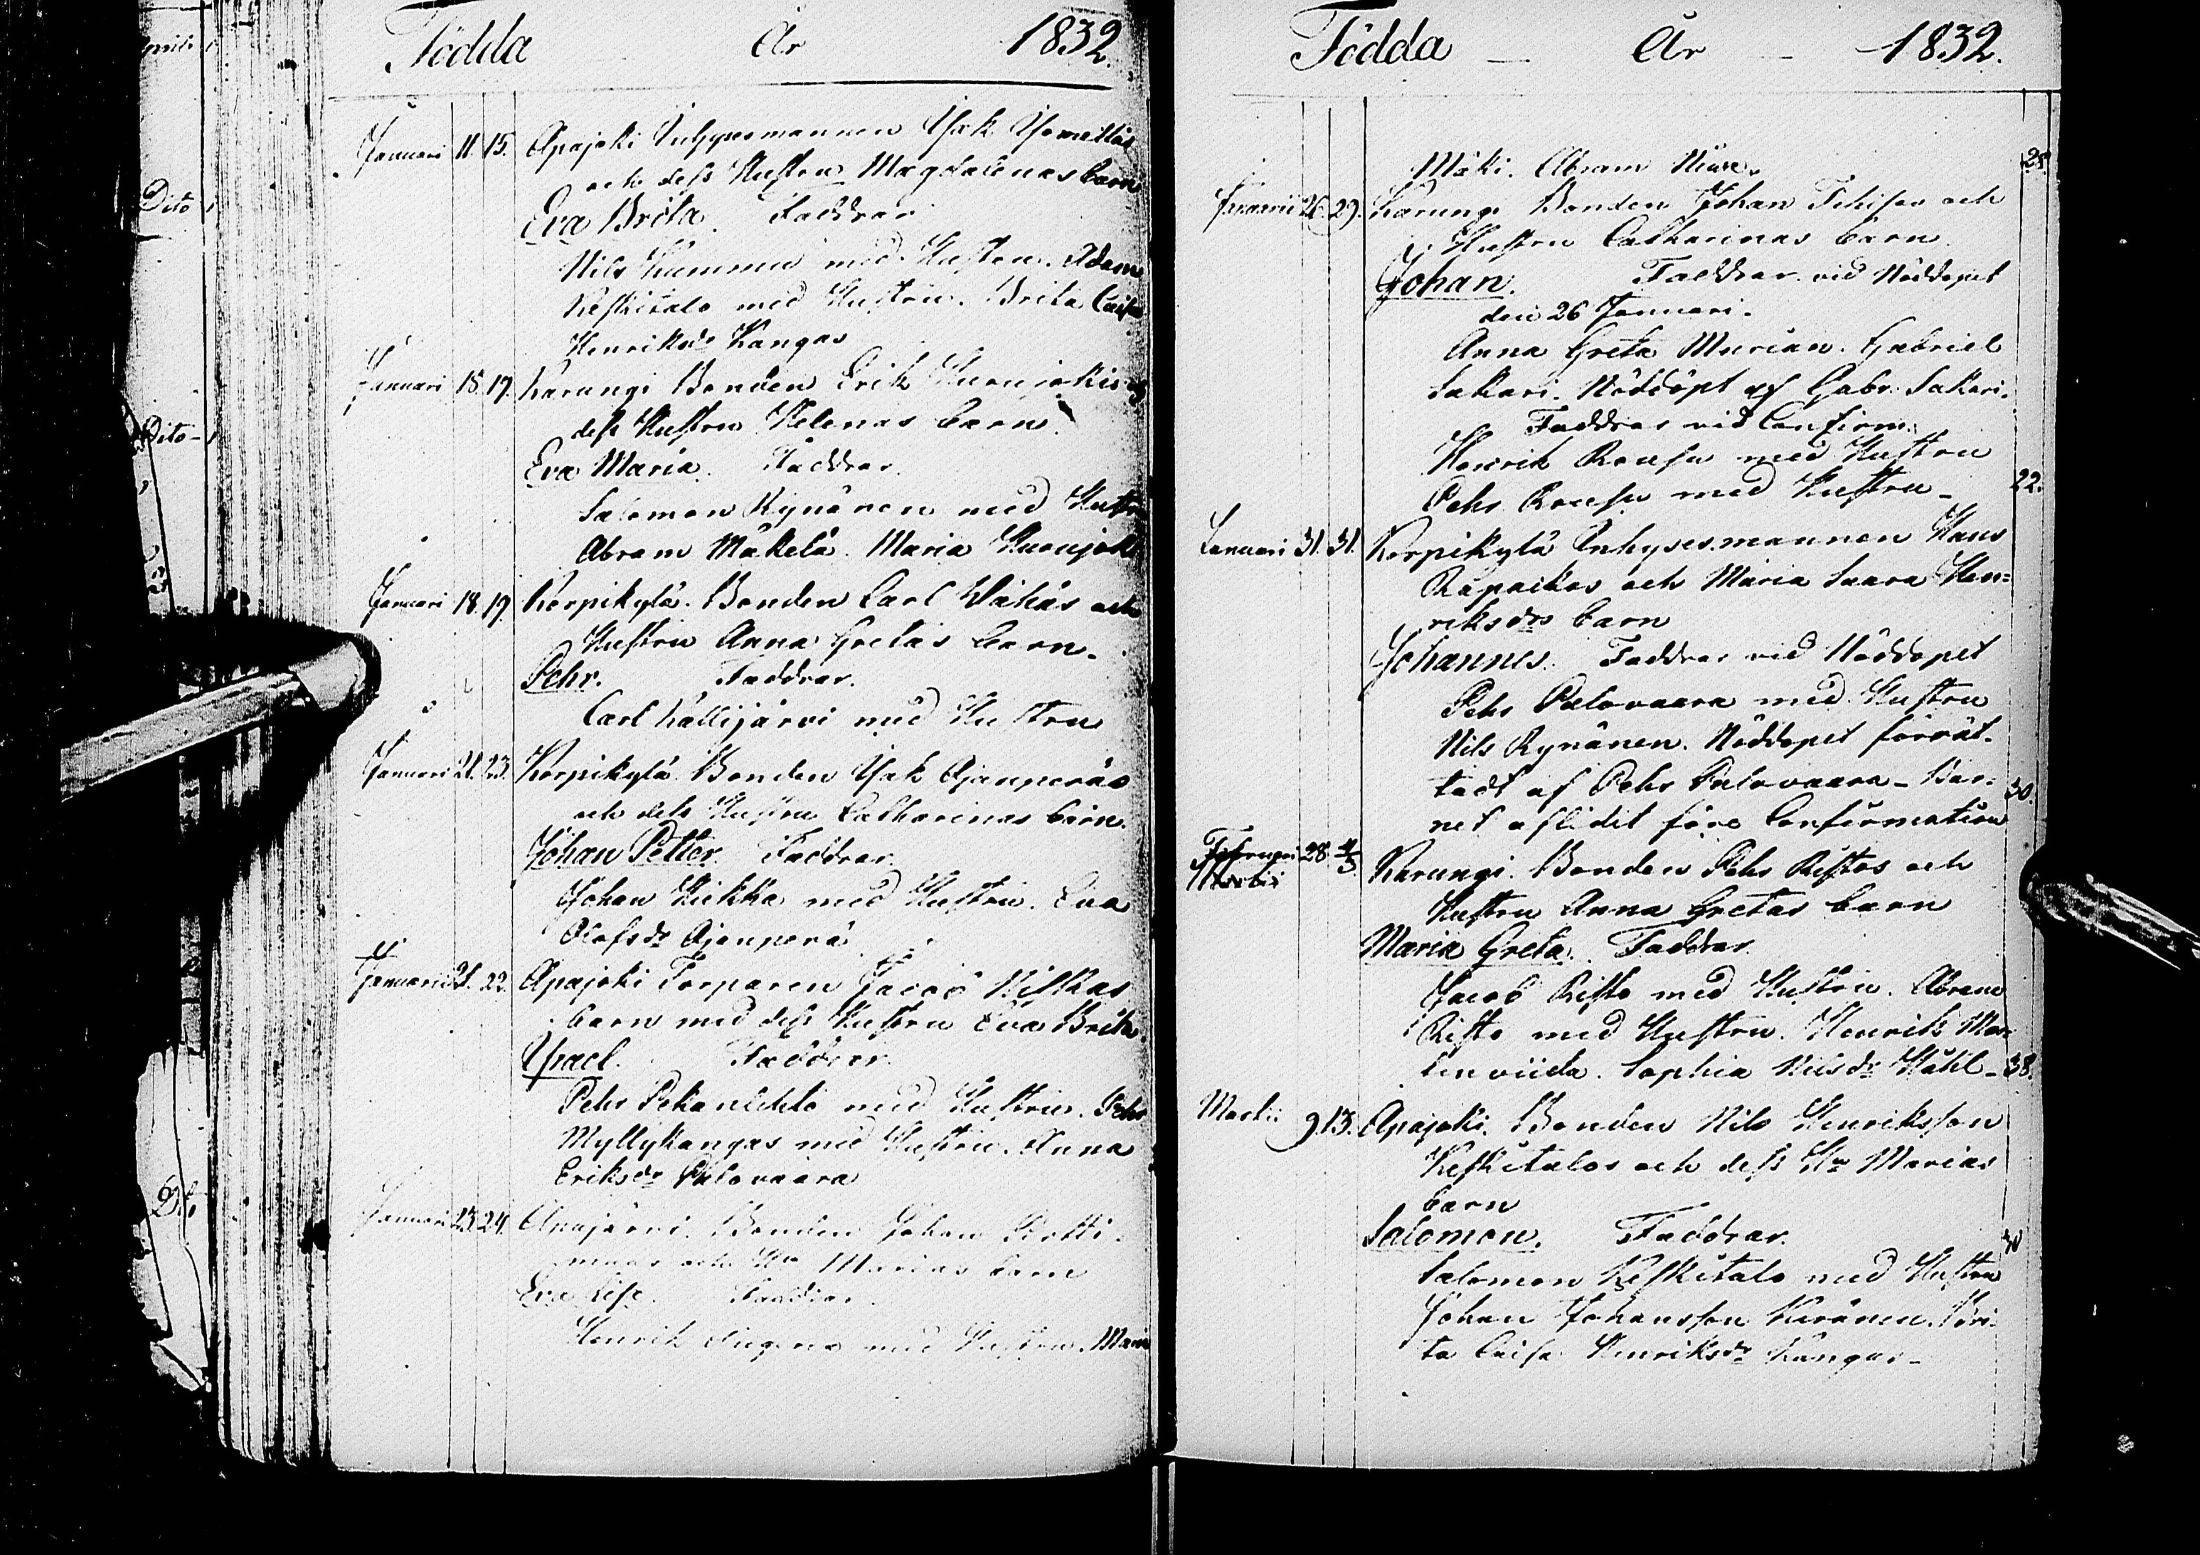 Födda År 1832.
Januari 11. 15. Apajoki Inhysesmannen Isak
och dess Hustru Magdalenas barn
Eva Brita. Faddrar
Nils med Hustru. Adam
Keskitalo med Hustru. Brita Caisa
Henriksdr Kangas
Januari 15. 17. Karungi Bonden Erik Kuoujokis
dess Hustru Helenas barn
Eva Maria. Faddrar.
Salomon Rynänen med Hustru
Abram Mäkelä. Maria Kuoujoki
Januari 18. 19. Korpikylä. Bonden Carl och
Hustru Anna Gretas barn.
Pehr. Faddrar.
Carl Kallijärvi med Hustru
Januari 21. 23. Korpikylä. Bonden Isak Ajanperäs
och dess Hustru Catharinas barn.
Johan Petter. Faddrar.
Johan med Hustru. Eva
Olofsdr Ajanperä
Januarii 21. 22. Apajoki Torparen Jacob Niskas
barn med dess Hustru Eva Brita
Israel. Faddrar.
Pehr Pekanlehto med Hustru. Pehr
Myllykangas med Hustru. Anna
Eriksdr Palovaara
Januari 23. 24. Bonden Johan
och Hu Marias barn
Eva Lisa. Faddrar.
Henrik med Hustru. Maria
Födda – År – 1832.
Mäki. Abram 28.
Januarii 26. 29. Karungi Bonden Johan och
Hustru Catharinas barn.
Johan. Faddrar vid Nöddopet
den 26 Januari.
Anna Greta Murian. Gabriel
Sakari. Nöddöpt af Gabr. Sakari.
Faddrar vid Confirm.
Henrik Rousu med Hustru
Pehr Rousu med Hustru – 22.
Januari 31. 31. Korpikylä Inhysesmannen Hans
Räpaikos och Maria Saara Hen=
riksdrs barn
Johannes. Faddrar vid Nöddopet
Pehr Palovaara med Hustru
Nils Rynänen. Nöddopet förrät-
tadt af Pehr Palovaara – Bar- 30.
net aflidit före Confirmation
Februari 28. 4/3 Karungi. Bonden Pehr Ristos och
Hustru Anna Gretas barn
Maria Greta. Faddrar.
Jacob Risto med Hustru. Abram
Risto med Hustru. Henrik Mar-
tinviida. Sophia Nilsdr – 38.
Martii 9 13. Apajoki. Bonden Nils Henriksson
Keskitalos och dess Hu Marias
barn
Salomon. Faddrar. 30
Salomon Keskitalo med Hustru
Johan Johansson Keränen. Bri-
ta Caisa Henriksdr Kangas –
Dito
Dito